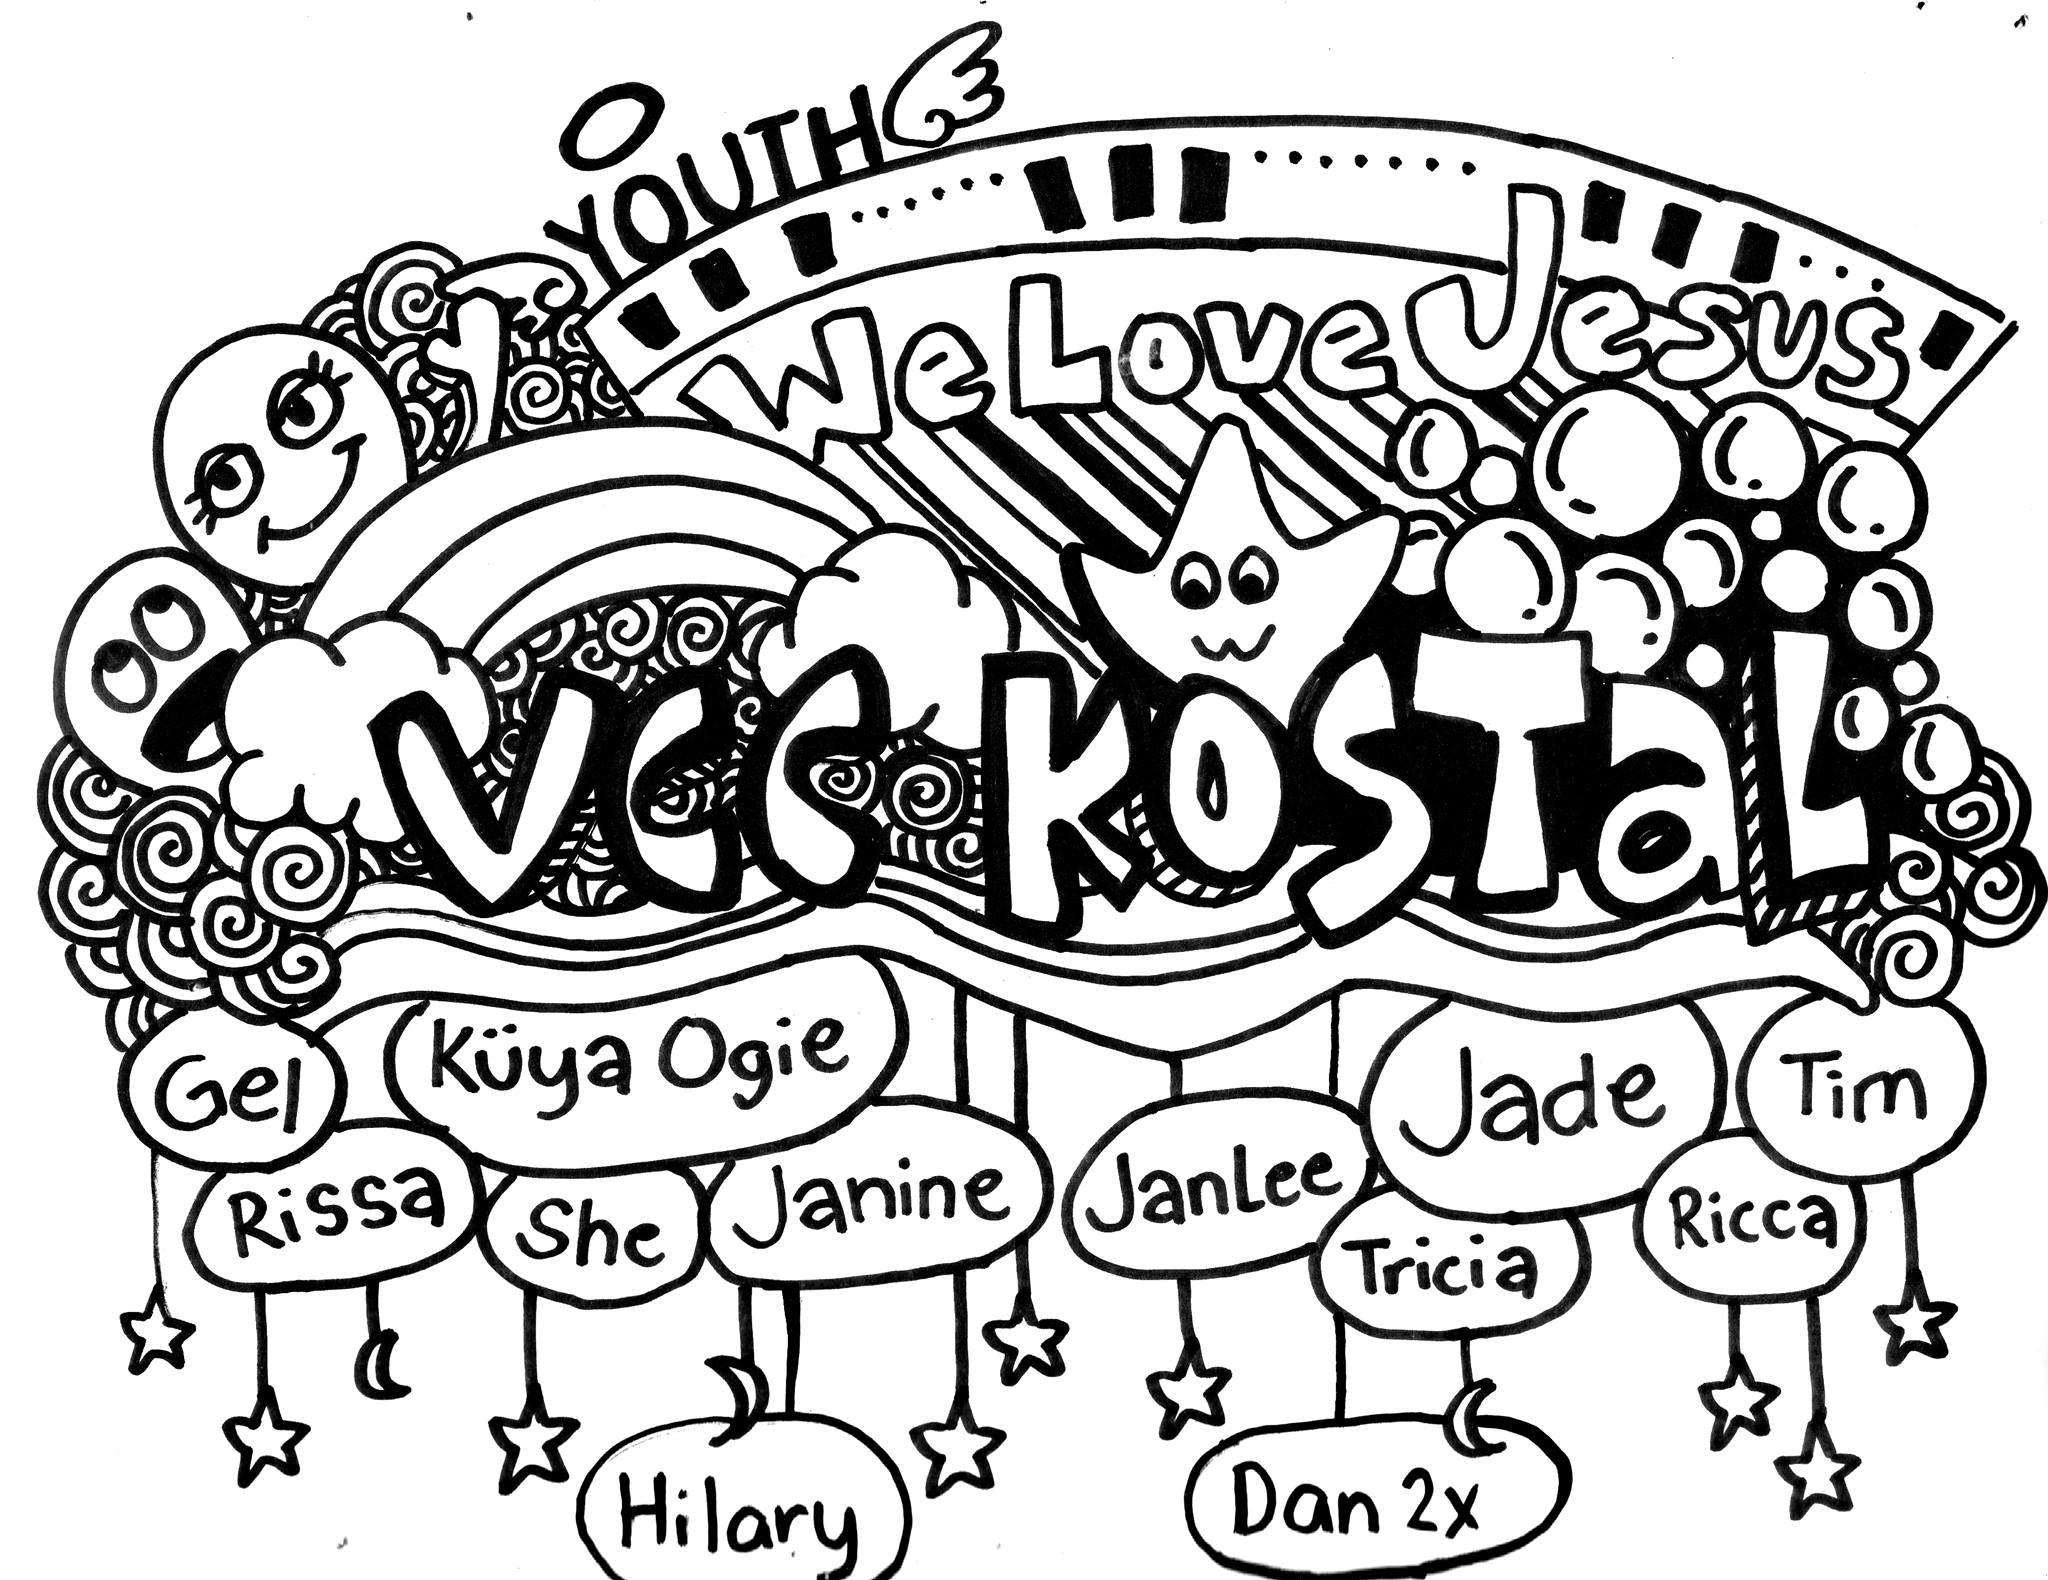 YOUTH
We Love Jesus
VEEKOSTaL
Gel
Küya Ogie
Jade
Tim
Rissa
She
Janine
JanLee
Tricia
Ricca
Hilary
Dan 2x